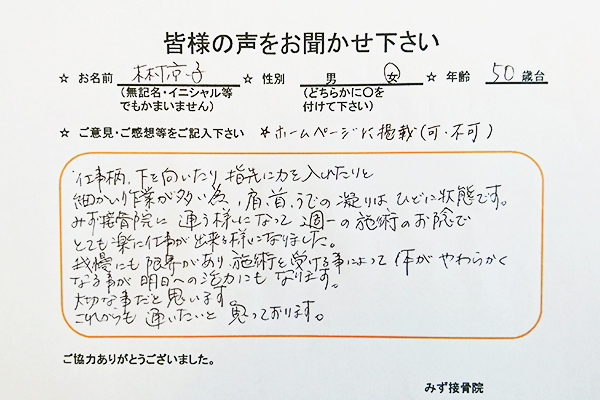 皆様の声をお聞かせ下さい
☆ お名前 木村京子 ☆ 性別 男 女 ☆ 年齢 50 歳台
(無記名・イニシャル等でもかまいません) (どちらかに〇を付けて下さい)
☆ ご意見・ご感想等をご記入下さい ☆ホームページに掲載(可・不可)
仕事柄、下を向いたり、指先に力を入れたりと
細かい作業が多い為、肩、首、うでの凝りは、ひどい状態です。
みず接骨院に通う様になって週一の施術のお陰で
とても楽に仕事が出来る様になりました。
我慢にも限界があり、施術を受ける事によって体がやわらかく
なる事が明日への活力にもなります。
大切な事だと思います
これからも通いたいと思っております。
ご協力ありがとうございました。
みず接骨院